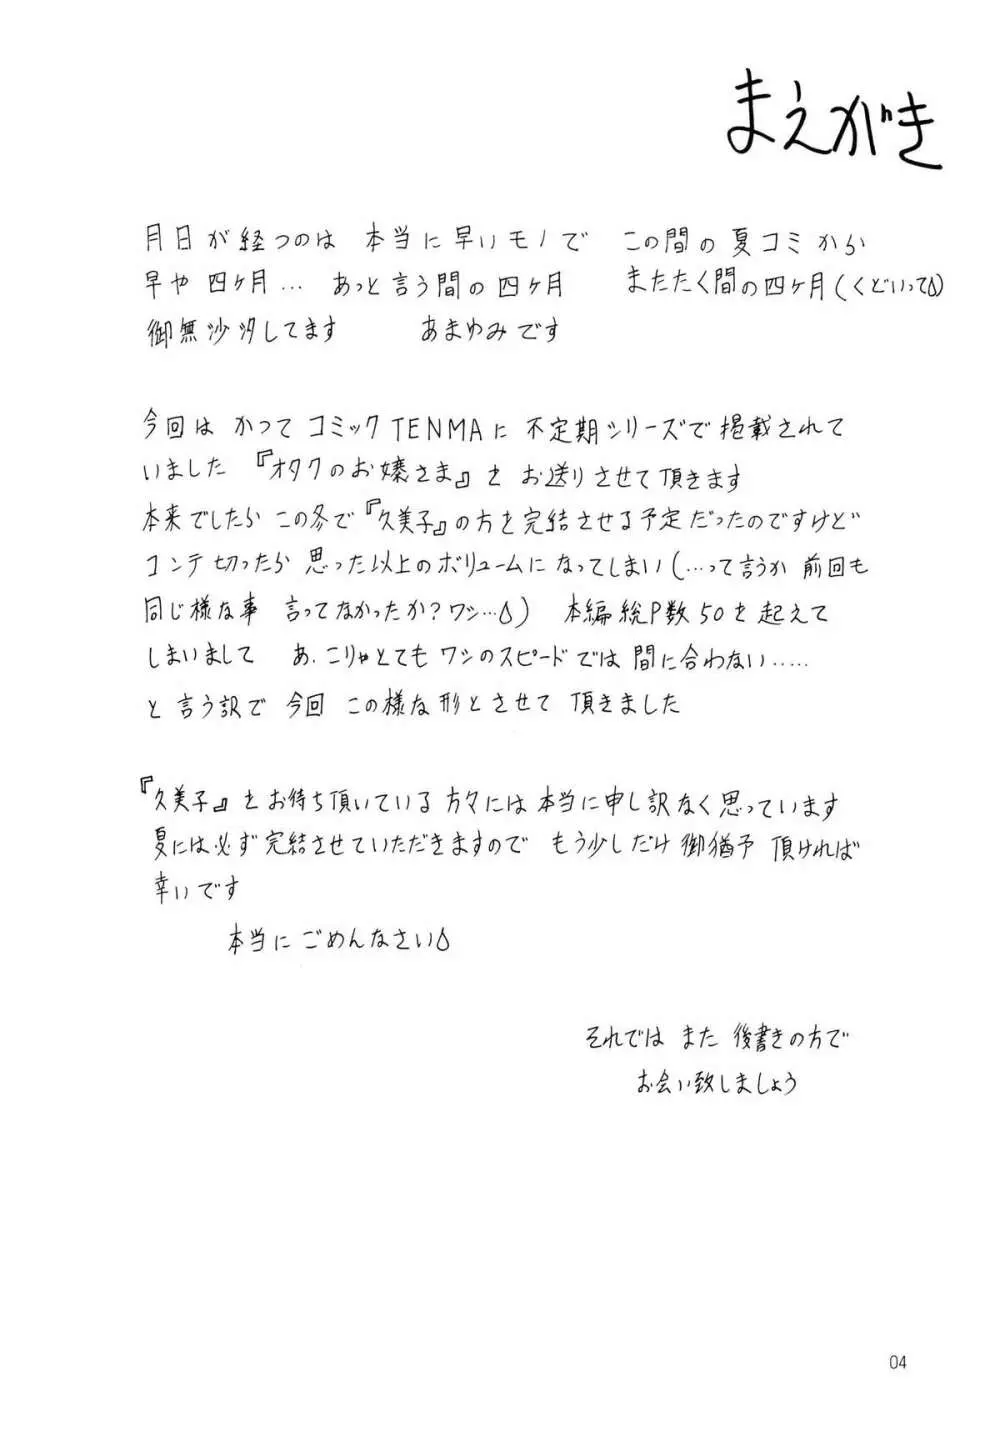 まえがき
月日が経つのは 本当に早いモノで この間の夏コミから
早や四ヶ月… あっと言う間の四ヶ月 またたく間の四ヶ月(くどいって)
御無沙汐してます あまゆみです
今回は かつて コミックTENMAに 不定期シリーズで掲載されて
いました『オタクのお嬢さま』を お送りさせて頂きます
本来でしたら この冬で『久美子』の方を完結させる予定だったのですけど
コンテ切ったら 思った以上のボリュームになってしまい(…って言うか 前回も
同じ様な事 言ってなかったか?ワシ…) 本編総P数50を起えて
しまいまして あ、こりゃとても ワシのスピードでは 間に合わない……
と言う訳で 今回 この様な形とさせて 頂きました
『久美子』をお待ち頂いている方々には本当に申し訳なく思っています
夏には必ず完結させていただきますので もう少しだけ 御猶予 頂ければ
幸いです
本当に ごめんなさい
それでは また 後書きの方で
お会い致しましょう
04